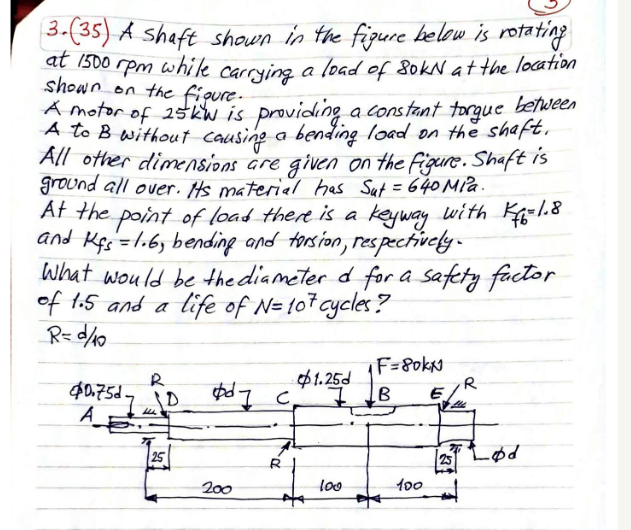 3.(35) A shaft shown in the figure below is rotating
at 1500 rpm while carrying a load of 80kN at the location
shown on the figure.
A motor of 25kW is providing a constant torque between
A to B without causing a bending load on the shaft.
All other dimensions are given on the figure. Shaft is
ground all over. Its material has Sut = 640 MPa.
At the point of load there is a keyway with Kfb=1.8
and Kfs =1.6, bending and torsion, respectively.
What would be the diameter d for a safety factor
of 1.5 and a life of N=10⁷ cycles?
R= d/10
F=80kN
ϕ0.75d R D ϕd C ϕ1.25d B E R
A
25 R 25 ϕd
200 100 100